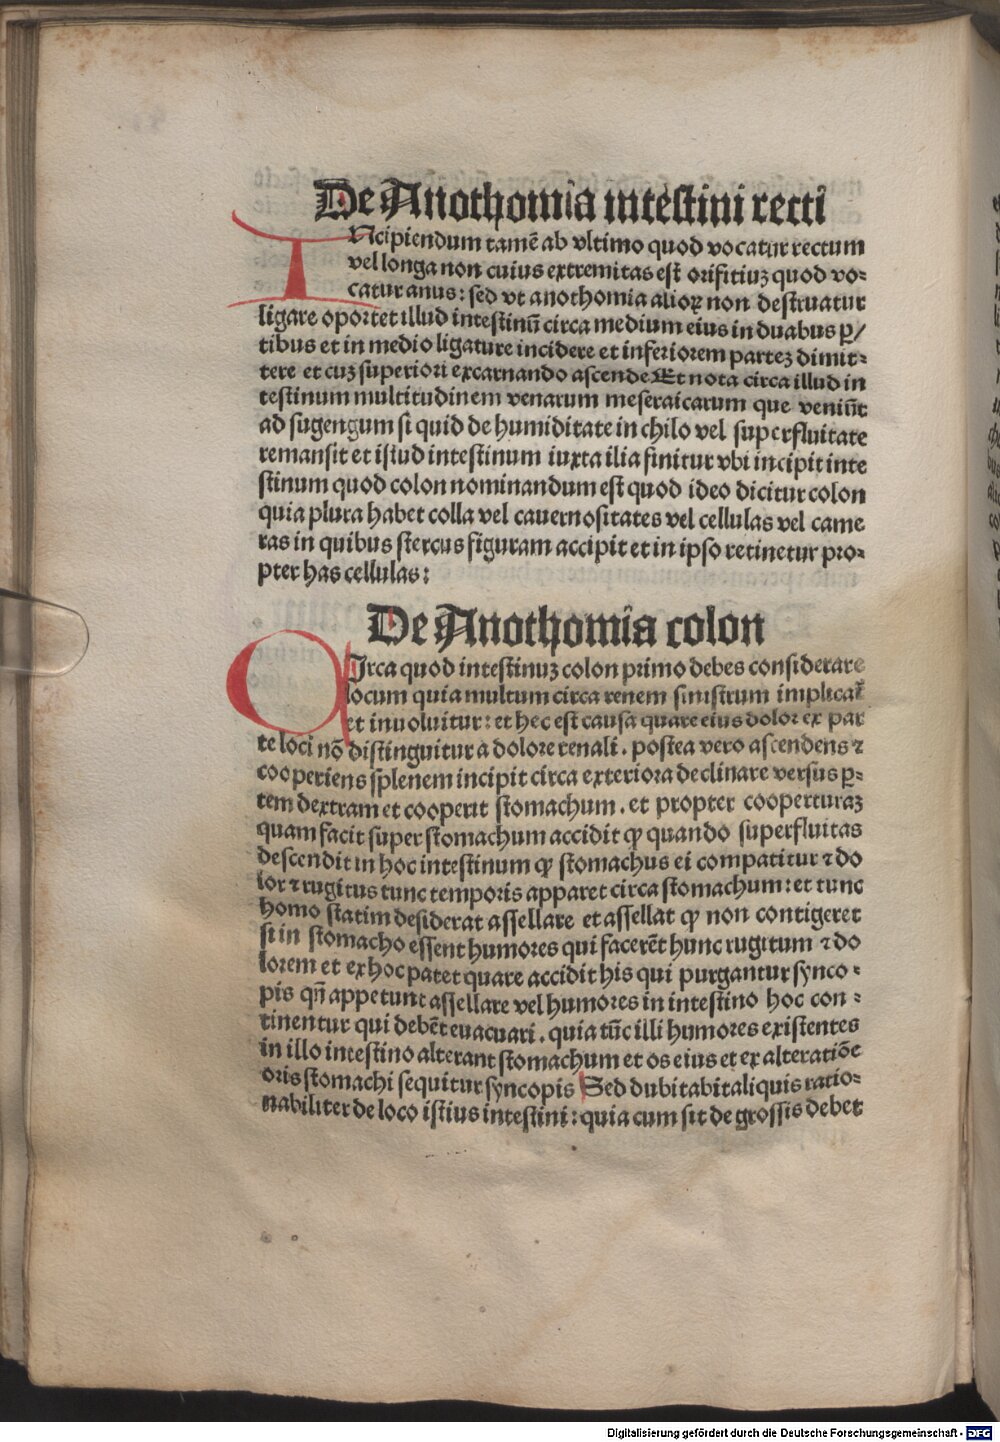 De Anothomia intestini recti
INcipiendum tamē ab vltimo quod vocatur rectum
vel longa non cuius extremitas est orifitiuz quod vo⸗
catur anus: sed vt anothomia alioꝝ non destruatur
ligare oportet illud intestinū circa medium eius in duabus ꝑ/
tibus et in medio ligature incidere et inferiorem partez dimit⸗
tere et cuz superiori excarnando ascende Et nota circa illud in
testinum multitudinem venarum meseraicarum que veniūt
ad sugengum si quid de humiditate in chilo vel superfluitate
remansit et istud intestinum iuxta ilia finitur vbi incipit inte
stinum quod colon nominandum est quod ideo dicitur colon
quia plura habet colla vel cauernositates vel cellulas vel came
ras in quibus stercus figuram accipit et in ipso retinetur pro⸗
pter has cellulas:
De Anothomia colon
CIrca quod intestinuz colon primo debes considerare
locum quia multum circa renem sinistrum implicat̄
et inuoluitur: et hec est causa quare eius dolor ex par
te loci nō distinguitur a dolore renali. postea vero ascendens ⁊
cooperiens splenem incipit circa exteriora declinare versus ꝑ⸗
tem dextram et cooperit stomachum. et propter cooperturaz
quam facit super stomachum accidit ꝙ quando superfluitas
descendit in hoc intestinum ꝙ stomachus ei compatitur ⁊ do
lor ⁊ rugitus tunc temporis apparet circa stomachum: et tunc
homo statim desiderat assellare et assellat ꝙ non contigeret
si in stomacho essent humores qui facerēt hunc rugitum ⁊ do
lorem et ex hoc patet quare accidit his qui purgantur synco⸗
pis qn̄ appetunt assellare vel humores in intestino hoc con⸗
tinentur qui debēt euacuari. quia tūc illi humores existentes
in illo intestino alterant stomachum et os eius et ex alteratiōe
oris stomachi sequitur syncopis Sed dubitabit aliquis ratio⸗
nabiliter de loco istius intestini: quia cum sit de grossis debet
Digitalisierung gefördert durch die Deutsche Forschungsgemeinschaft - DFG